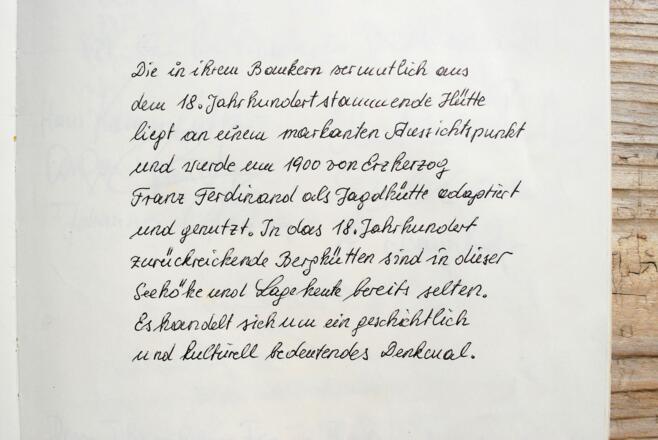 Die in ihrem Baukern vermutlich aus
dem 18. Jahrhundert stammende Hütte
liegt an einem markanten Aussichtspunkt
und wurde um 1900 von Erzherzog
Franz Ferdinand als Jagdhütte adaptiert
und genutzt. In das 18. Jahrhundert
zurückreichende Berghütten sind in dieser
Seehöhe und Lage heute bereits selten.
Es handelt sich um ein geschichtlich
und kulturell bedeutendes Denkmal.